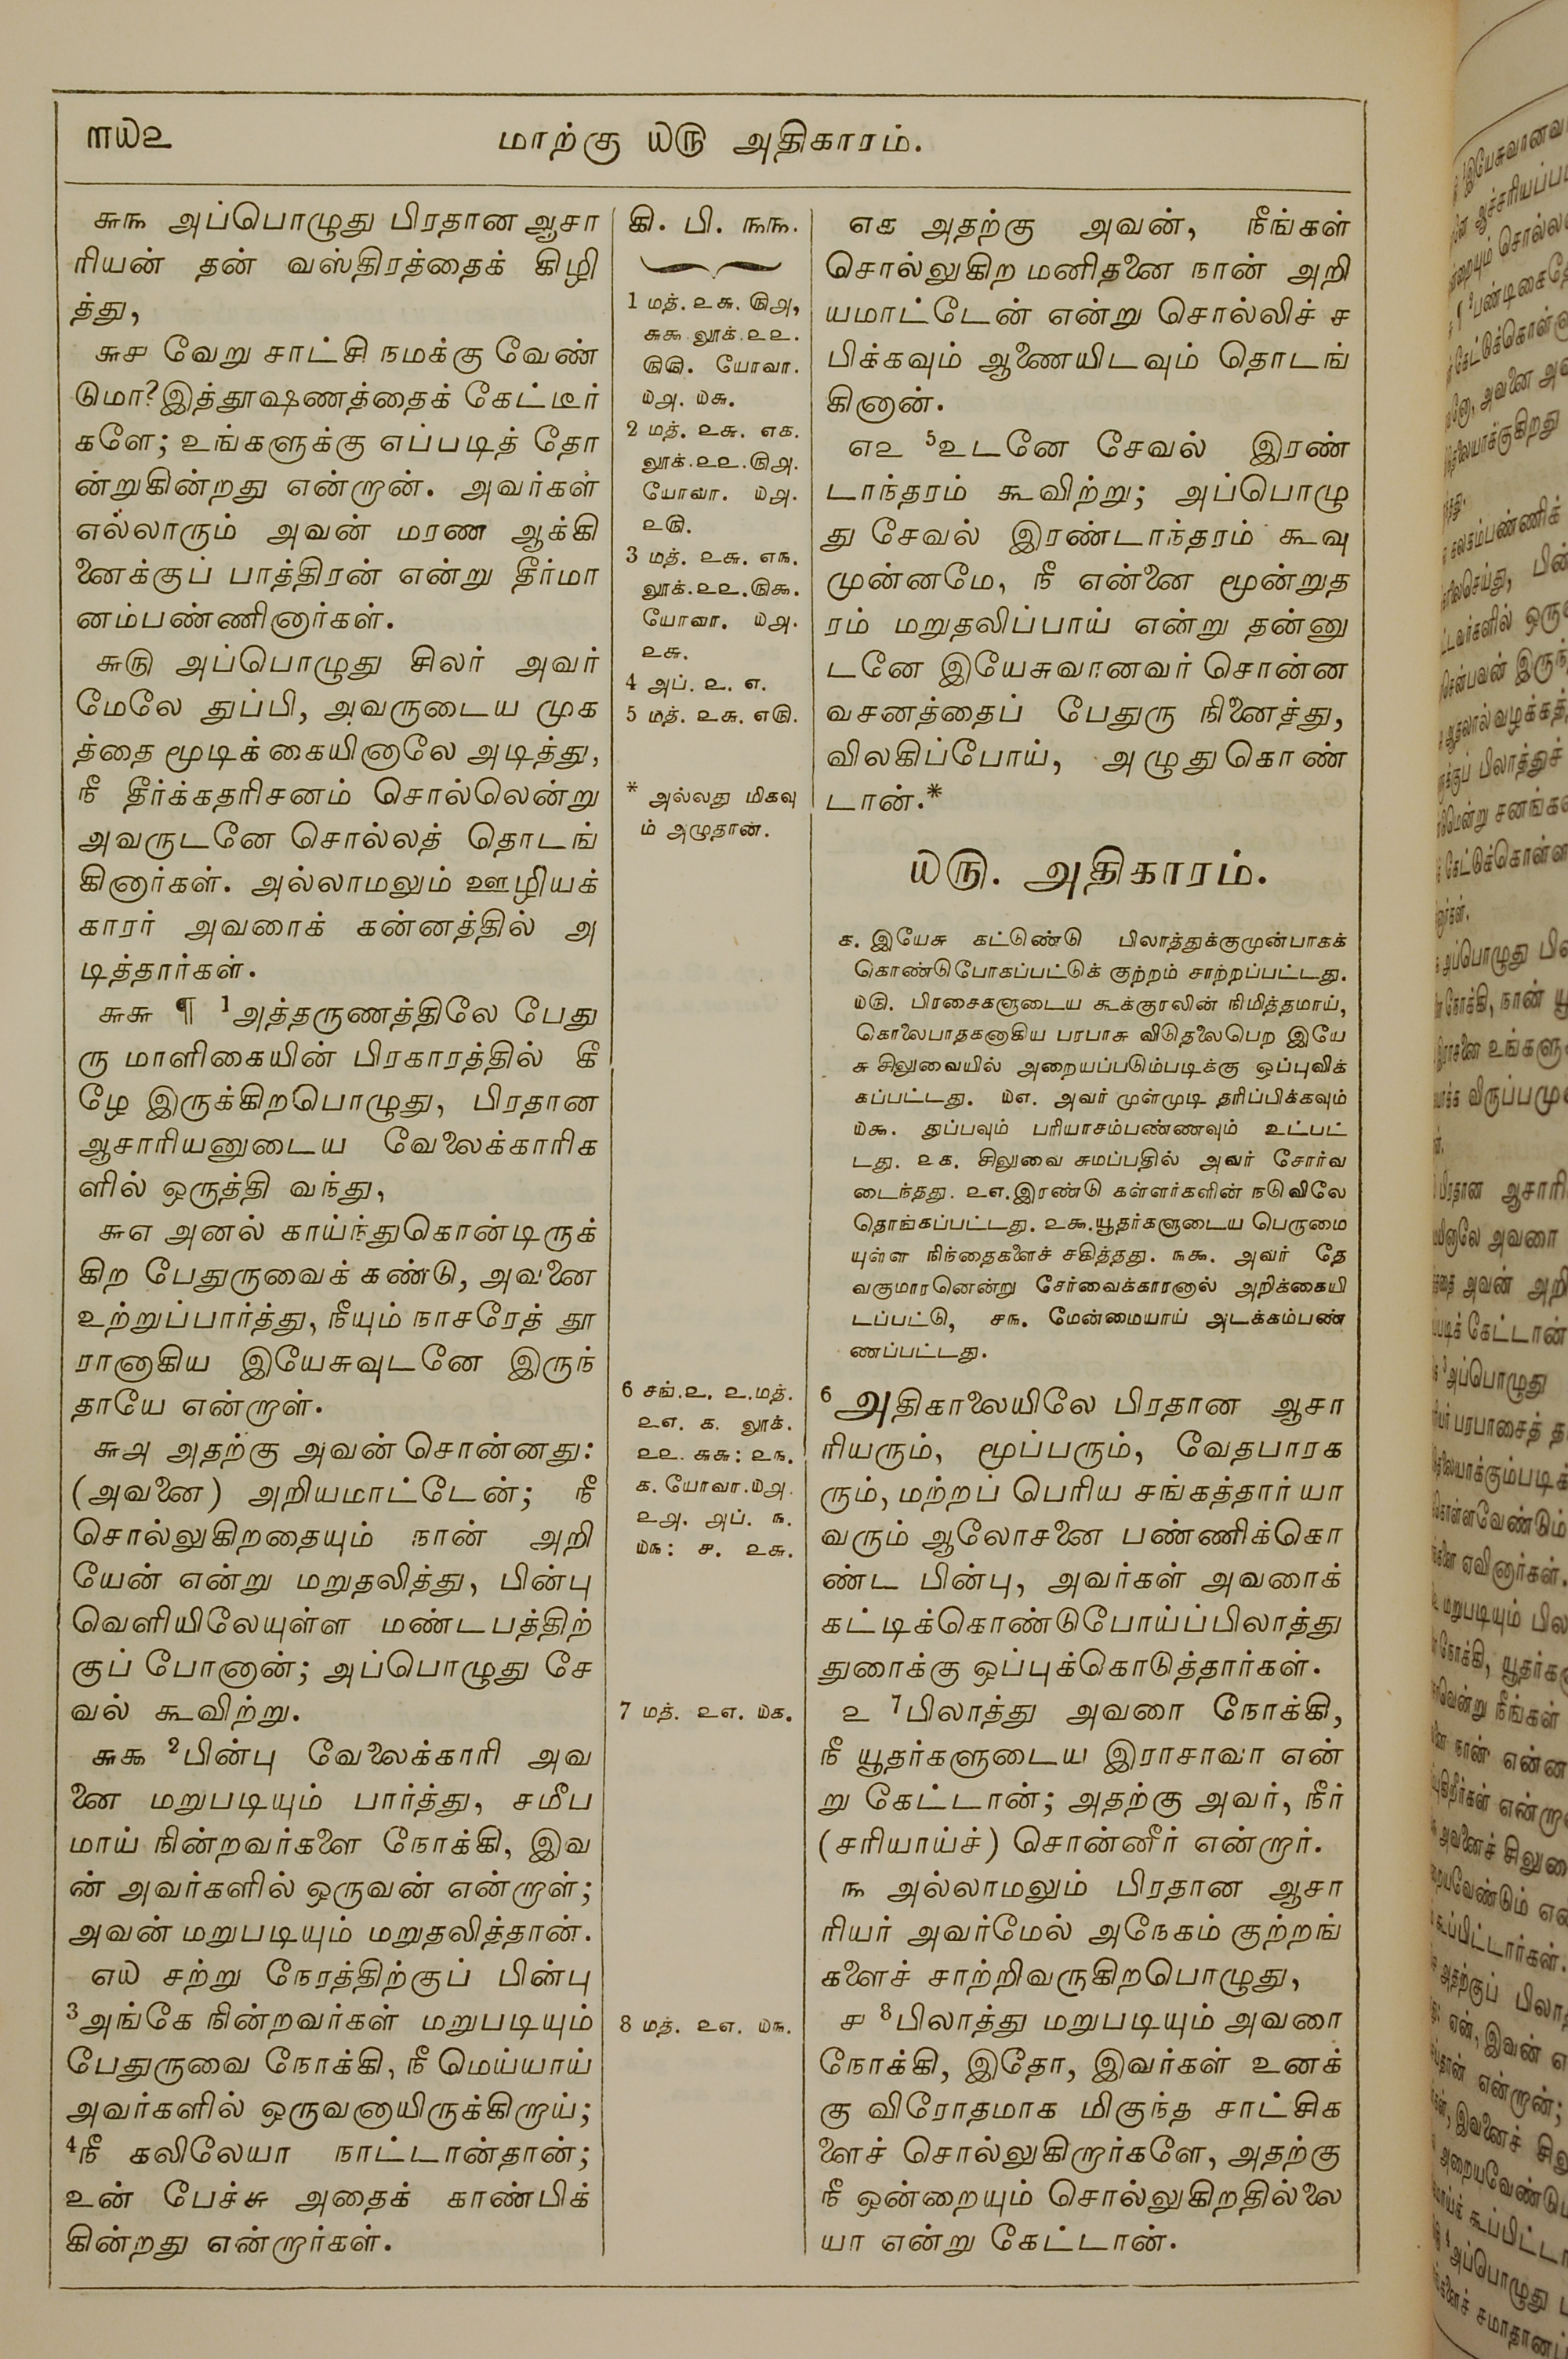 ௱௰௨
மாற்கு ௰௫ அதிகாரம்.
௬௩ அப்பொழுது பிரதான ஆசா
ரியன் தன் வஸ்திரத்தைக் கிழி
த்து,
௬௪ வேறு சாட்சி நமக்கு வேண்
டுமா? இத்தூஷணத்தைக் கேட்டீர்
களே; உங்களுக்கு எப்படித் தோ
ன்றுகின்றது என்றான். அவர்கள்
எல்லாரும் அவன் மரண ஆக்கி
னைக்குப் பாத்திரன் என்று தீர்மா
னம்பண்ணினார்கள்.
௬௫ அப்பொழுது சிலர் அவர்
மேலே துப்பி, அவருடைய முக
த்தை மூடிக் கையினாலே அடித்து,
நீ தீர்க்கதரிசனம் சொல்லென்று
அவருடனே சொல்லத் தொடங்
கினார்கள். அல்லாமலும் ஊழியக்
காரர் அவரைக் கன்னத்தில் அ
டித்தார்கள்.
௬௬ ¶ 1அத்தருணத்திலே பேது
ரு மாளிகையின் பிரகாரத்தில் கீ
ழே இருக்கிறபொழுது, பிரதான
ஆசாரியனுடைய வேலைக்காரிக
ளில் ஒருத்தி வந்து,
௬௭ அனல் காய்ந்துகொண்டிருக்
கிற பேதுருவைக் கண்டு, அவனை
உற்றுப்பார்த்து, நீயும் நாசரேத் தூ
ரானாகிய இயேசுவுடனே இருந்
தாயே என்றாள்.
௬௮ அதற்கு அவன் சொன்னது:
(அவனை) அறியமாட்டேன்; நீ
சொல்லுகிறதையும் நான் அறி
யேன் என்று மறுதலித்து, பின்பு
வெளியிலேயுள்ள மண்டபத்திற்
குப் போனான்; அப்பொழுது சே
வல் கூவிற்று.
௬௯ 2பின்பு வேலைக்காரி அவ
னை மறுபடியும் பார்த்து, சமீப
மாய் நின்றவர்களை நோக்கி, இவ
ன் அவர்களில் ஒருவன் என்றாள்;
அவன் மறுபடியும் மறுதலித்தான்.
௭௰ சற்று நேரத்திற்குப் பின்பு
3அங்கே நின்றவர்கள் மறுபடியும்
பேதுருவை நோக்கி, நீ மெய்யாய்
அவர்களில் ஒருவனாயிருக்கிறாய்;
4நீ கலிலேயா நாட்டான்தான்;
உன் பேச்சு அதைக் காண்பிக்
கின்றது என்றார்கள்.
கி. பி. ௩௩.
1 மத். ௨௬. ௫௮,
௬௯. லூக். ௨௨.
௫௫. யோவா.
௰௮. ௰௬.
2 மத். ௨௬. ௭௧.
லூக். ௨௨. ௫௮.
யோவா. ௰௮.
௨௫.
3 மத். ௨௬. ௭௩.
லூக். ௨௨. ௫௯.
யோவா. ௰௮.
௨௬.
4 அப். ௨. ௭.
5 மத். ௨௬. ௭௫.
* அல்லது மிகவு
ம் அழுதான்.
6 சங். ௨. ௨. மத்.
௨௭. ௧. லூக்.
௨௨. ௬௬: ௨௩.
௧. யோவா. ௰௮.
௨௮. அப். ௩.
௰௩: ௪. ௨௬.
7 மத். ௨௭. ௰௧.
8 மத். ௨௭. ௰௩.
௭௧ அதற்கு அவன், நீங்கள்
சொல்லுகிற மனிதனை நான் அறி
யமாட்டேன் என்று சொல்லிச் ச
பிக்கவும் ஆணையிடவும் தொடங்
கினான்.
௭௨ 5உடனே சேவல் இரண்
டாந்தரம் கூவிற்று; அப்பொழு
து சேவல் இரண்டாந்தரம் கூவு
முன்னமே, நீ என்னை மூன்றுத
ரம் மறுதலிப்பாய் என்று தன்னு
டனே இயேசுவானவர் சொன்ன
வசனத்தைப் பேதுரு நினைத்து,
விலகிப்போய், அழுதுகொண்
டான்.*
௰௫. அதிகாரம்.
௧. இயேசு கட்டுண்டு பிலாத்துக்குமுன்பாகக்
கொண்டுபோகப்பட்டுக் குற்றம் சாற்றப்பட்டது.
௰௫. பிரசைகளுடைய கூக்குரலின் நிமித்தமாய்,
கொலைபாதகனாகிய பரபாசு விடுதலைபெற இயே
சு சிலுவையில் அறையப்படும்படிக்கு ஒப்புவிக்
கப்பட்டது. ௰௭. அவர் முள்முடி தரிப்பிக்கவும்
௰௯. துப்பவும் பரியாசம்பண்ணவும் உட்பட்
டது. ௨௧. சிலுவை சுமப்பதில் அவர் சோர்வ
டைந்தது. ௨௭. இரண்டு கள்ளர்களின் நடுவிலே
தொங்கப்பட்டது. ௨௯. யூதர்களுடைய பெருமை
யுள்ள நிந்தைகளைச் சகித்தது. ௩௯. அவர் தே
வகுமாரனென்று சேர்வைக்காரனால் அறிக்கையி
டப்பட்டு, ௪௩. மேன்மையாய் அடக்கம்பண்
ணப்பட்டது.
6அதிகாலையிலே பிரதான ஆசா
ரியரும், மூப்பரும், வேதபாரக
ரும், மற்றப் பெரிய சங்கத்தார் யா
வரும் ஆலோசனை பண்ணிக்கொ
ண்ட பின்பு, அவர்கள் அவரைக்
கட்டிக்கொண்டுபோய்ப்பிலாத்து
துரைக்கு ஒப்புக்கொடுத்தார்கள்.
௨ 7பிலாத்து அவரை நோக்கி,
நீ யூதர்களுடைய இராசாவா என்
று கேட்டான்; அதற்கு அவர், நீர்
(சரியாய்ச்) சொன்னீர் என்றார்.
௩ அல்லாமலும் பிரதான ஆசா
ரியர் அவர்மேல் அநேகம் குற்றங்
களைச் சாற்றிவருகிறபொழுது,
௪ 8பிலாத்து மறுபடியும் அவரை
நோக்கி, இதோ, இவர்கள் உனக்
கு விரோதமாக மிகுந்த சாட்சிக
ளைச் சொல்லுகிறார்களே, அதற்கு
நீ ஒன்றையும் சொல்லுகிறதில்லை
யா என்று கேட்டான்.